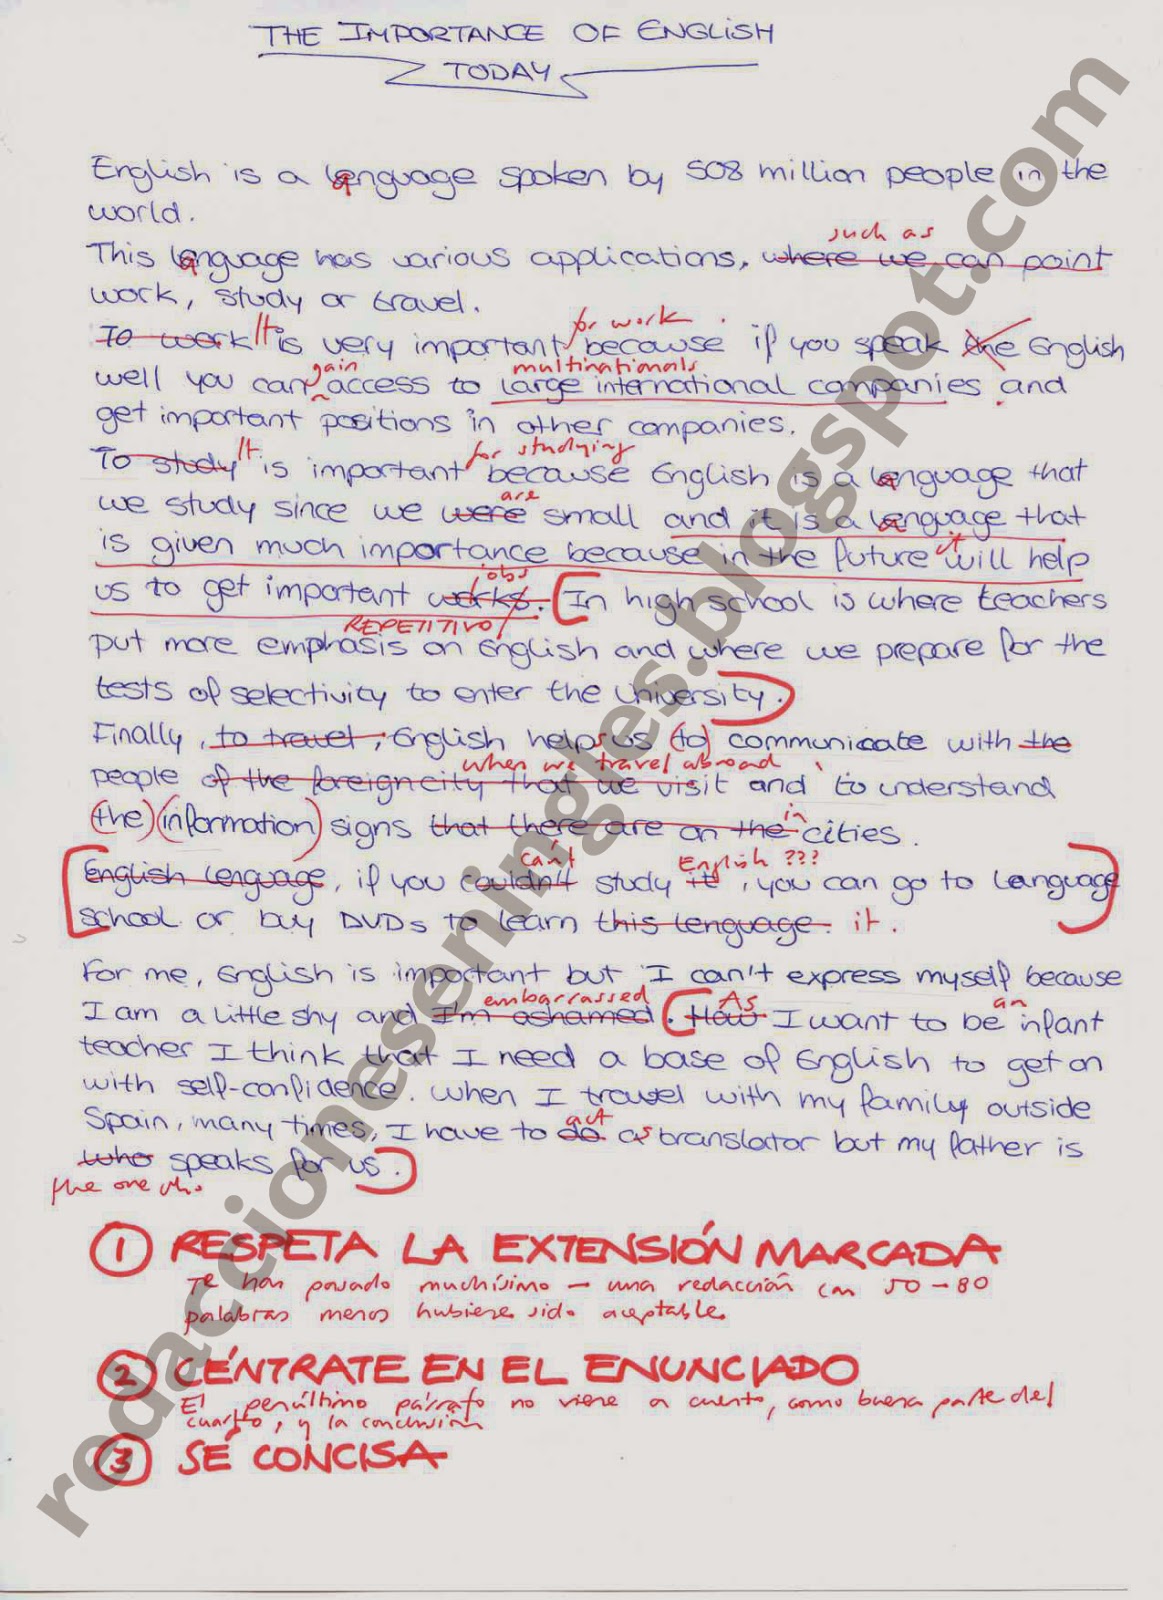 THE IMPORTANCE OF ENGLISH
TODAY
English is a language spoken by 508 million people in the
world.
such as
This language has various applications, where we can point
work, study or travel.
for work
To work It is very important because if you speak the English
gain multinationals
well you can access to large international companies and
get important positions in other companies.
for studying
To study It is important because English is a language that
are
we study since we were small and it is a language that
it
is given much importance because in the future will help
jobs
us to get important works. In high school is where teachers
REPETITIVO
put more emphasis on English and where we prepare for the
tests of selectivity to enter the university.
Finally, to travel, English helps us (to) communicate with the
when we travel abroad
people of the foreign city that we visit and to understand
in
(the) (information) signs that there are on the cities.
can't English ???
English lenguage, if you couldn't study it, you can go to language
school or buy DVDs to learn this lenguage. it.
For me, English is important but I can't express myself because
embarrassed As an
I am a little shy and I'm ashamed. How I want to be infant
teacher I think that I need a base of English to get on
with self-confidence. When I travel with my family outside
act
Spain, many times, I have to do as translator but my father is
who speaks for us.
the one who
1 RESPETA LA EXTENSIÓN MARCADA
Te han pasado muchísimo – una redacción con 50-80
palabras menos hubiese sido aceptable
2 CÉNTRATE EN EL ENUNCIADO
El penúltimo párrafo no viene a cuento, como buena parte del
cuarto, y la conclusión
3 SÉ CONCISA
redaccioneseningles.blogspot.com